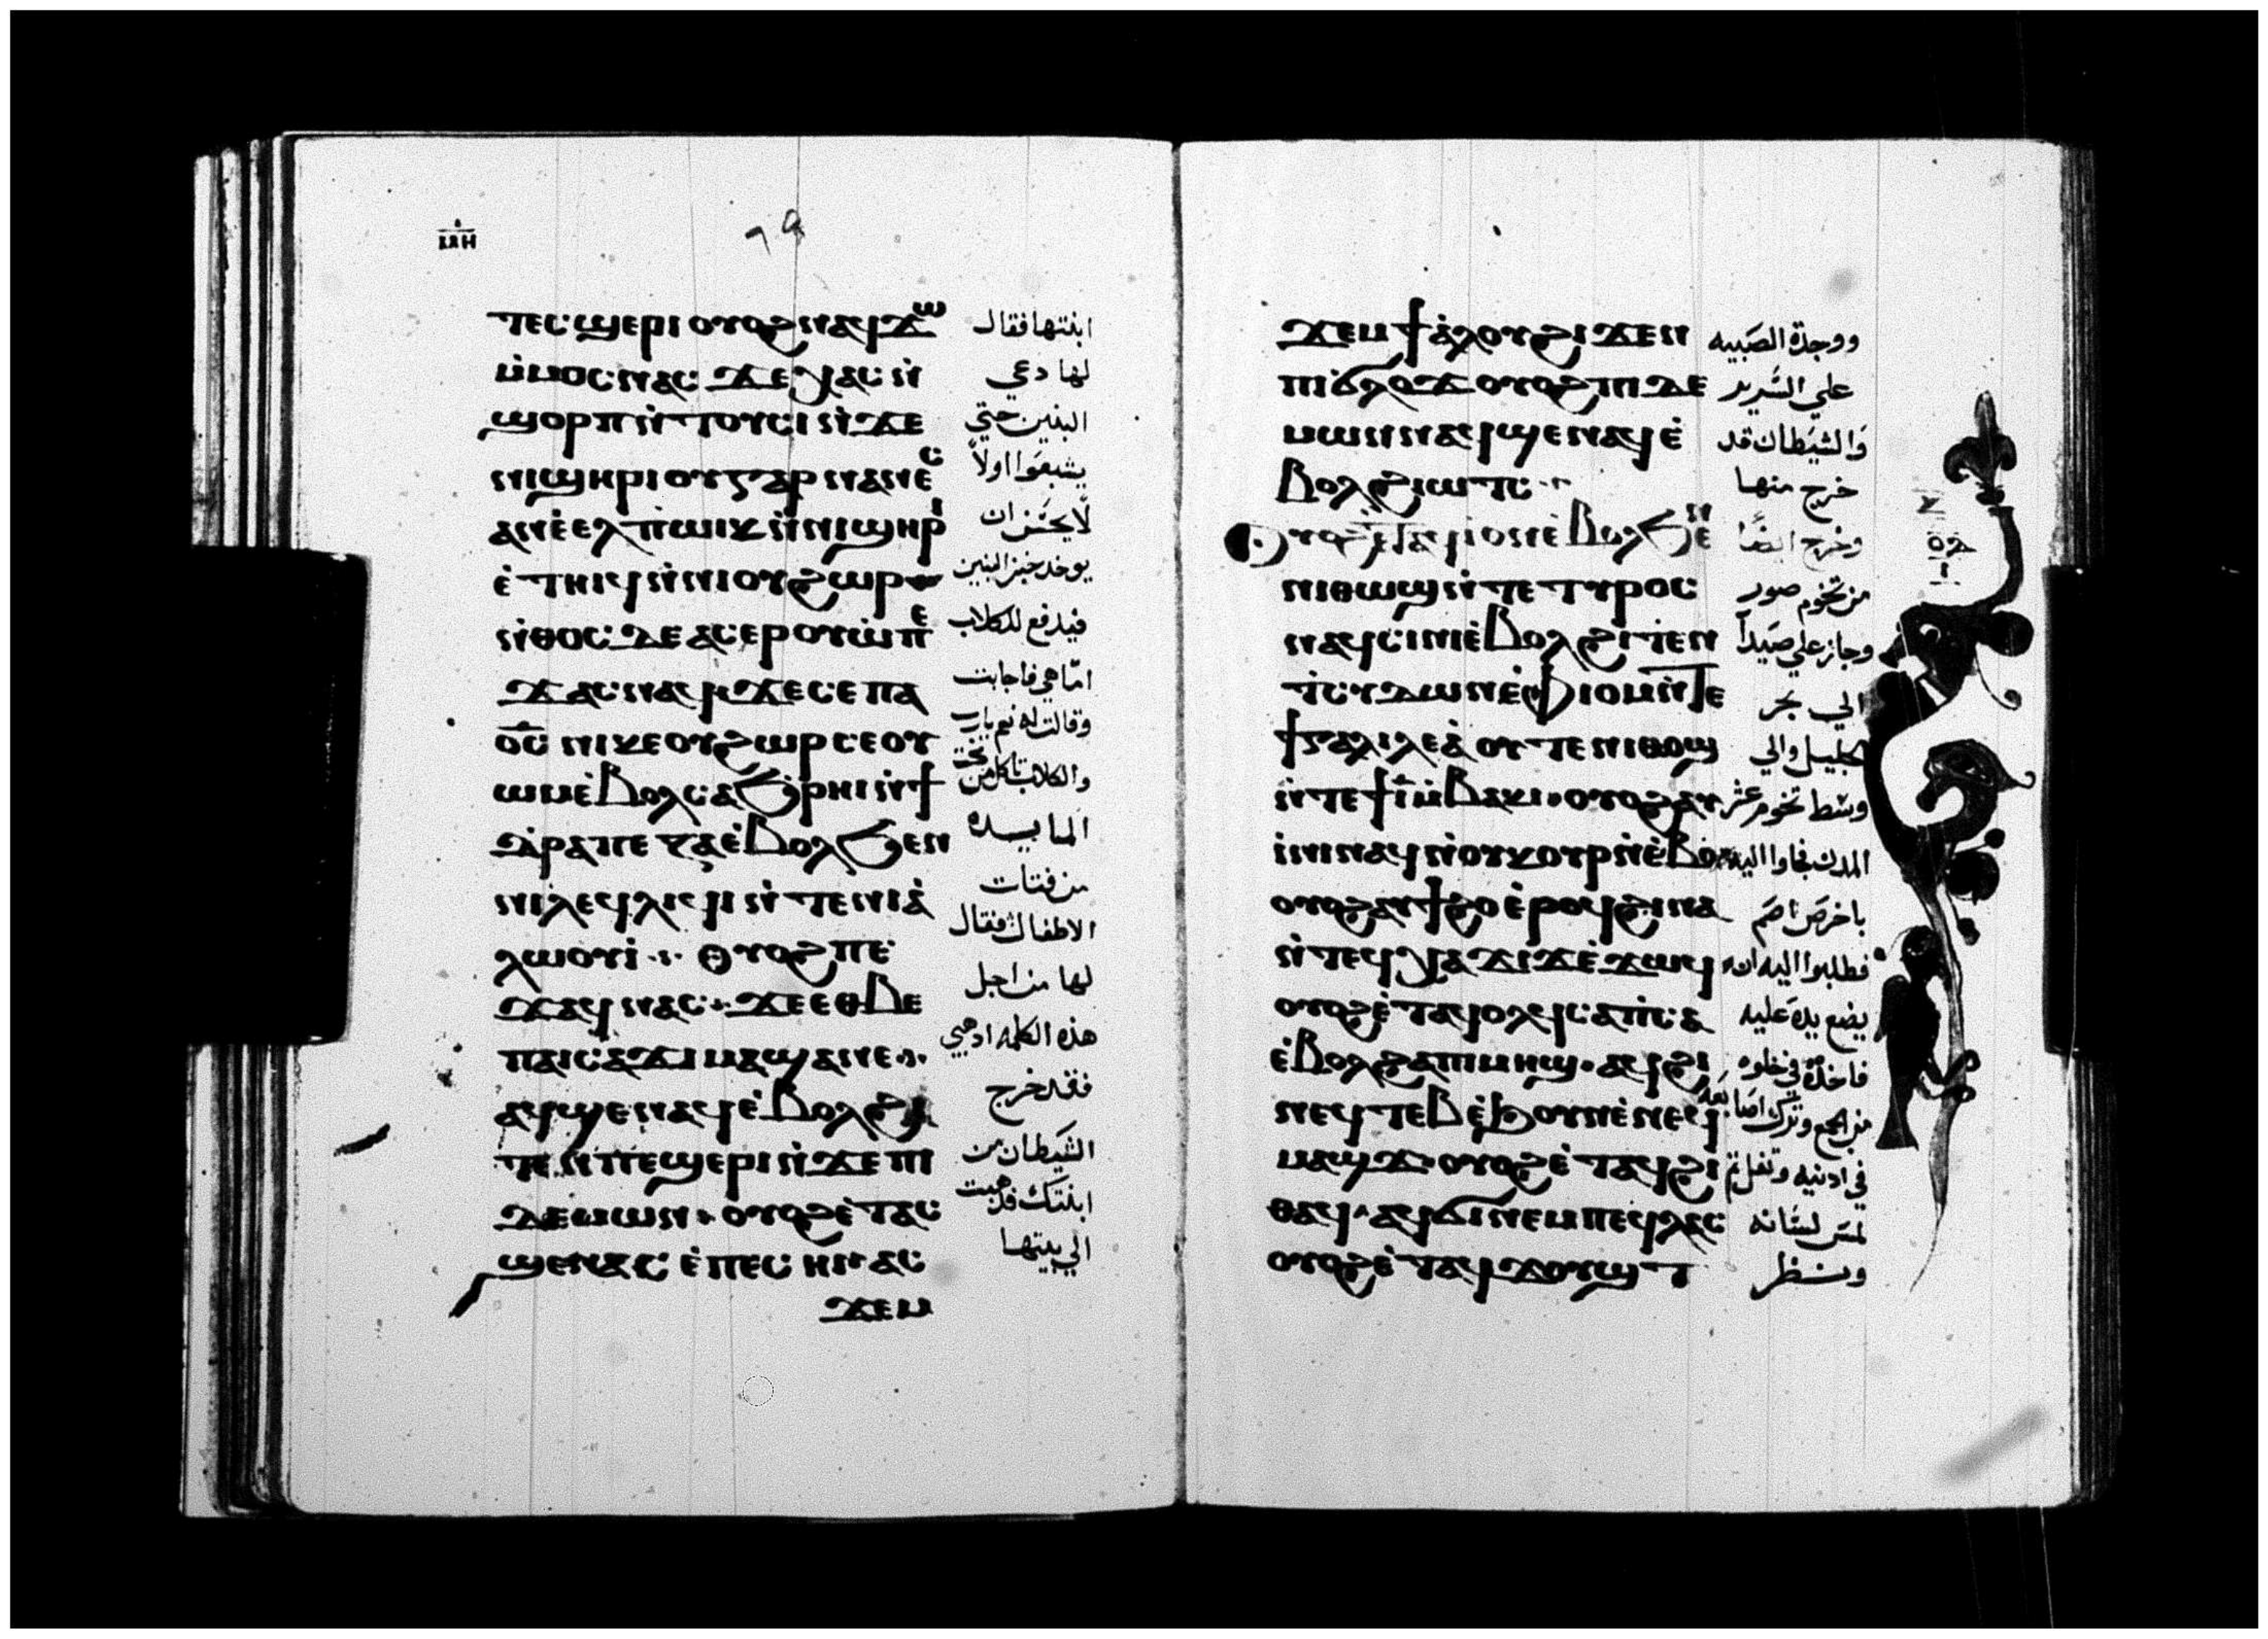 ⲙⲏ
ⲧⲉⲥϣⲉⲣⲓ ⲟⲩⲟϩ ⲛⲁϥϫⲱ
ⲙ̀ⲙⲟⲥ ⲛⲁⲥ ϫⲉ ⲭⲁⲥ ⲛ̀
ϣⲟⲣⲡ ⲛ̀ⲧⲟⲩⲥⲓ ⲛ̀ϫⲉ
ⲛⲓϣⲏⲣⲓ ⲟⲩ ⲅⲁⲣ ⲛⲁⲛⲉⲥ
ⲁⲛ ⲉ̀ⲉⲗ ⲡ̀ⲱⲓⲕ ⲛ̀ⲛⲓϣⲏⲣⲓ
ⲉ̀ⲧⲏⲓϥ ⲛ̀ⲛⲓⲟⲩϩⲱⲣ
ⲛ̀ⲑⲟⲥ ⲇⲉ ⲁⲥⲉⲣⲟⲩⲱ̀ ⲡⲉ
ϫⲁⲥ ⲛⲁϥ ϫⲉ ⲥⲉ ⲡⲁ
ⲟ̅ⲥ̅ ⲛⲓⲕⲉⲟⲩϩⲱⲣ ⲥⲉⲟⲩ
ⲱⲙ ⲉ̀ⲃⲟⲗ ⲥⲁϧⲣⲏⲓ ⲛ̀ϯ
ⲧ̀ⲣⲁⲡⲉⲍⲁ ⲉ̀ⲃⲟⲗϧⲉⲛ
ⲛⲓⲗⲉϥⲗⲓϥⲓ ⲛ̀ⲧⲉ ⲛⲓⲁ̀
ⲗⲱⲟⲩⲓ̀ ⲟⲩⲟϩ ⲡⲉ
ϫⲁϥ ⲛⲁⲥ ϫⲉ ⲉⲑⲃⲉ
ⲡⲁⲓⲥⲁϫⲓ ⲙⲁϣⲁⲛⲉ
ⲁϥϣⲉⲛⲁϥ ⲉ̀ⲃⲟⲗϩⲓ
ⲧⲉⲛ ⲧⲉϣⲉⲣⲓ ⲛ̀ϫⲉ ⲡⲓ
ⲇⲉⲙⲱⲛ ⲟⲩⲟϩ ⲉ̀ⲧⲁⲥ
ϣⲉⲛⲁⲥ ⲉ̀ⲡⲉⲥⲏⲓ ⲁⲥ
ϫⲉⲙ
ابنتها فقال
لها دعي
البنين حتي
يشبعوا اولاً
لا يحسن ان
يوخذ خبز البنين
فيدفع للكلاب
امّا هي فاجابت
وقالت له نعم يارب
والكلاب تاكل من تحت
المايده
من فتات
الاطفال فقال
لها من اجل
هذه الكلمه اذهبي
فقد خرج
الشيطان من
ابنتك فذهبت
الي بيتها
ϫⲉⲙ ϯⲁ̀ⲗⲟⲩ ϩⲓϫⲉⲛ
ⲡⲓϭⲗⲟϫ ⲟⲩⲟϩ ⲡⲓⲇⲉ
ⲙⲱⲛ ⲛⲁϥϣⲉⲛⲁϥ ⲉ̀
ⲃⲟⲗϩⲓⲱⲧⲥ
ⲟⲩⲟϩ ⲉ̀ⲧⲁϥⲓ ⲟⲛ ⲉ̀ⲃⲟⲗϧⲉⲛ
ⲛⲓⲑⲱϣ ⲛ̀ⲧⲉ ⲧⲩⲣⲟⲥ
ⲛⲁϥⲥⲓⲛⲓ ⲉ̀ⲃⲟⲗϩⲓⲧⲉⲛ
ⲧ̀ⲥⲩⲇⲱⲛ ⲉ̀ⲫⲓⲟⲙ ⲛ̀ⲧⲉ
ϯⲅⲁⲗⲓⲗⲉⲁ̀ ⲟⲩⲧⲉ ⲛⲓⲑⲱϣ
ⲛ̀ⲧⲉ ϯⲓ̅ ⲙ̀ⲃⲁⲕⲓ ⲟⲩⲟϩ ⲁⲩ
ⲓ̀ⲛⲓ ⲛⲁϥ ⲛ̀ⲟⲩⲕⲟⲩⲣ ⲛ̀ⲉ̀ⲃⲟ
ⲟⲩⲟϩ ⲁⲩϯϩⲟ ⲉ̀ⲣⲟϥ ϩⲓⲛⲁ
ⲛ̀ⲧⲉϥⲭⲁ ϫⲓϫ ⲉ̀ϫⲱϥ
ⲟⲩⲟϩ ⲉ̀ⲧⲁϥⲟⲗϥ ⲥⲁⲡ̀ⲥⲁ
ⲉ̀ⲃⲟⲗϩⲁ ⲡⲓⲙⲏϣ ⲁϥϩⲓ
ⲛⲉϥⲧⲉⲃ ⲉ̀ϧⲟⲩⲛ ⲉ̀ⲛⲉϥ
ⲙⲁϣϫ ⲟⲩⲟϩ ⲉ̀ⲧⲁϥϩⲓ
ⲑⲁϥ ⲁϥϭⲓ ⲛⲉⲙ ⲡⲉϥⲗⲁⲥ
ⲟⲩⲟϩ ⲉ̀ⲧⲁϥϫⲟⲩϣⲧ
ووجدة الصبيه
علي السرير
والشيطان قد
خرج منها
وخرج ايضاً
من تخوم صور
وجاز علي صيدا
الي بحر
الجليل والي
وسط تخوم عشر
المدن فجاوا اليه
باخرس اصم
فطلبوا اليه ان
يضع يده عليه
فاخذه في خلوه
من الجمع وترك اصابعه
في اذنيه وتفل ثم
لمس لسانه
ونظر